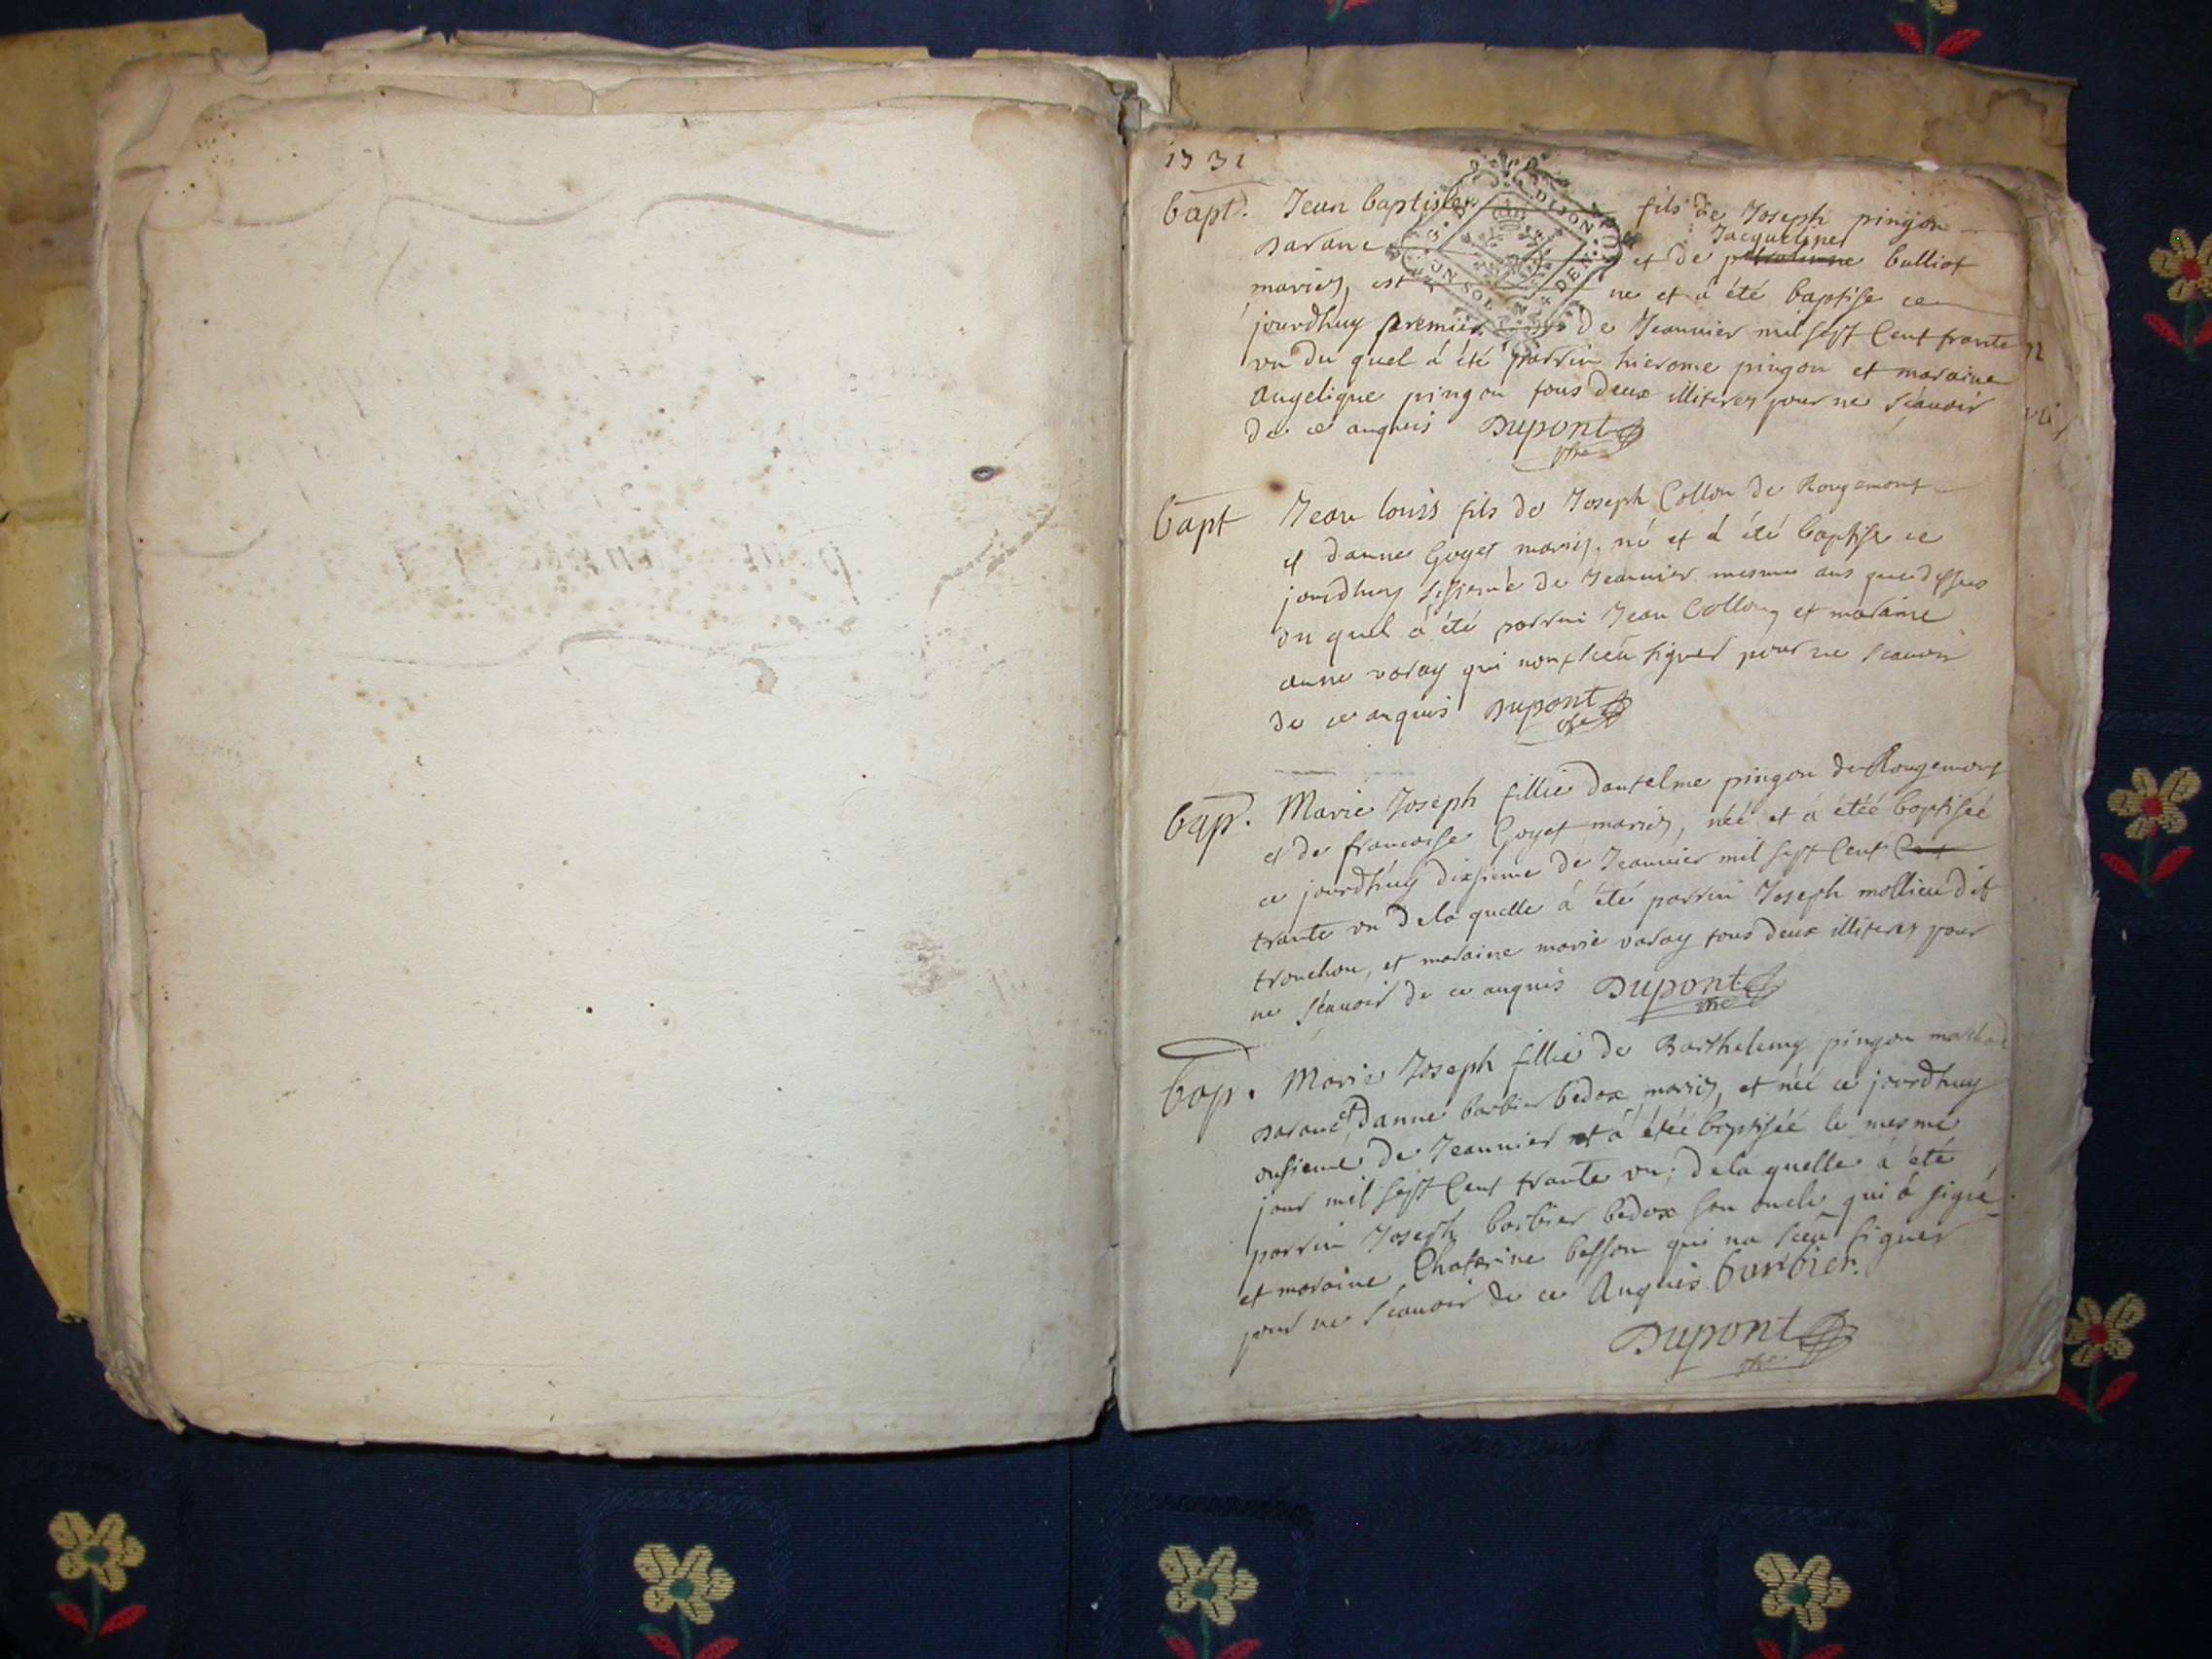 1731
bapt. Jean baptiste fils de Joseph pingon
Jacqueline
darane et de petronienne bulliot
mariés, est ne et á été baptisé ce
jourdhuy premier de Jeanvier mil sept Cent trante
vn du quel á été parrin hierome pingon et maraine
angelique pingon tous deux illiterez pour ne scavoir
de ce anquis Dupont
ptre
bapt Jean louis fils de Joseph Collon de Rougemont
et danne Goyet mariés, né et á été baptisé ce
jourdhuy sisieme de Jeanvier mesme ans que dessus
du quel á été parrin Jean Collon et maraine
anne varay qui nont sceu signer pour ne scavoir
de ce anquis Dupont
ptre
bap. Marie Joseph fillie dantelme pingon de Rougemont
et de francoise Goyet mariés, néé et á étéé baptiséé
ce jourdhuy dixsieme de Jeanvier mil sept Cent Cent
trante vn de la quelle á été parrin Joseph mollieu dit
tronchon, et maraine marie varay tous deux illiterez pour
ne scavoir de ce anquis Dupont
ptre
bap. Marie Joseph fillie de Barthelemy pingon marchand
darane et danne barbier bedox mariés, et néé ce jourdhuy
onsieme de Jeanvier et á étéé baptiséé le mesme
jour mil sept Cent trante vn; de la quelle á été
parrin Joseph barbier bedox son oncle qui á signé
et maraine Chaterine besson qui na sceu signer
pour ne scavoir de ce Anquis barbier.
Dupont
ptre